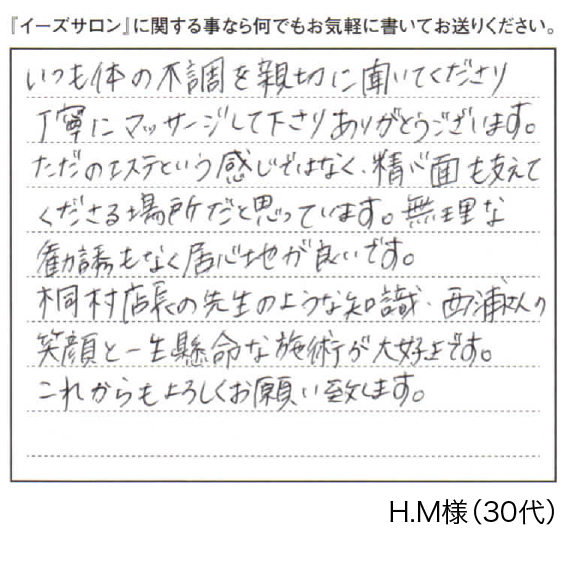 『イーズサロン』に関する事なら何でもお気軽に書いてお送りください。
いつも体の不調を親切に聞いてくださり
丁寧にマッサージして下さりありがとうございます。
ただのエステという感じではなく、精心面も支えて
くださる場所だと思っています。無理な
勧誘もなく居心地が良いです。
桐村店長の先生のような知識、西浦さんの
笑顔と一生懸命な施術が大好きです。
これからもよろしくお願い致します。
H.M様（30代）